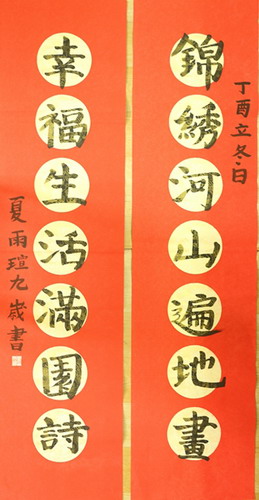 丁酉立冬日
錦綉河山遍地畫
幸福生活滿園詩
夏雨瑄九歲書